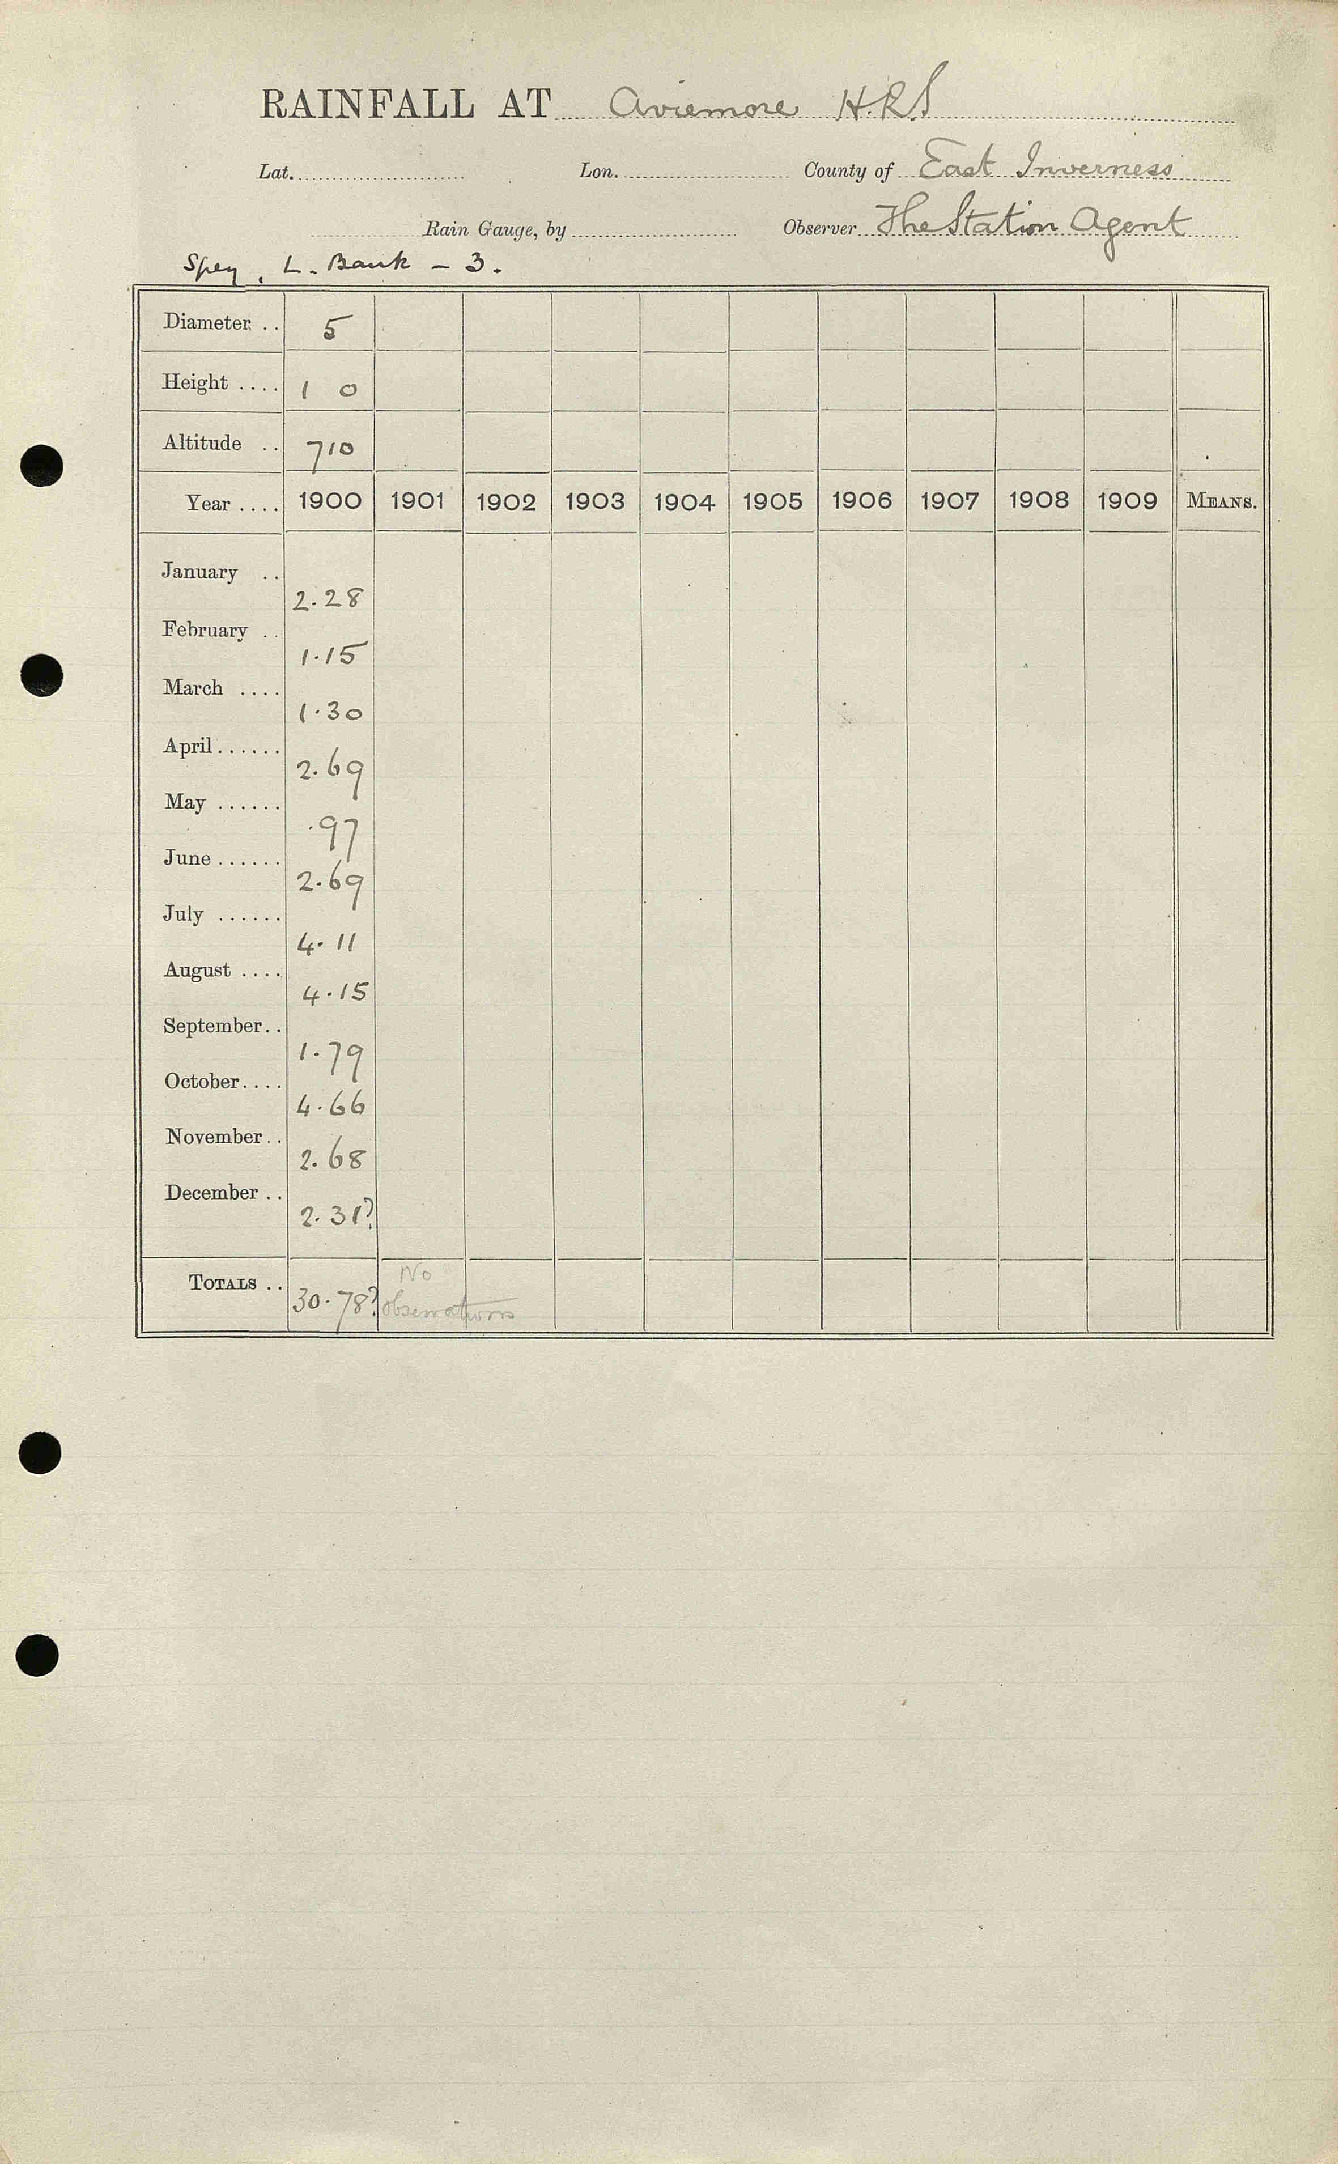 RAINFALL AT Aviemore H.R.S
Lat. Lon. County of East Inverness
Rain Gauge, by Observer The Station Agent
Spey, L. Bank - 3.
Diameter .. 5
Height .... 1 0
Altitude .. 710
Year .... 1900 1901 1902 1903 1904 1905 1906 1907 1908 1909 MEANS.
January .. 2.28
February .. 1.15
March .... 1.30
April ...... 2.69
May ...... .97
June ...... 2.69
July ...... 4.11
August .... 4.15
September .. 1.79
October .... 4.66
November .. 2.68
December .. 2.31?
TOTALS .. 30.78? No
observations